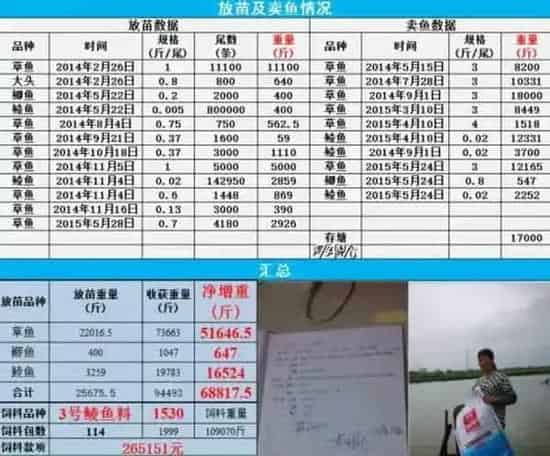 放苗及卖鱼情况
放苗数据 卖鱼数据
品种 时间 规格(斤/尾) 尾数(条) 重量(斤) 品种 时间 规格(斤/尾) 重量(斤)
草鱼 2014年2月26日 1 11100 11100 草鱼 2015年5月15日 3 8200
大头 2014年2月26日 0.8 800 640 草鱼 2014年7月28日 3 10331
鲫鱼 2014年5月22日 0.2 2000 400 草鱼 2014年9月1日 3 18000
鲮鱼 2014年5月22日 0.005 800000 400 草鱼 2015年3月10日 3 8449
草鱼 2014年8月4日 0.75 750 562.5 草鱼 2015年4月10日 4 1518
草鱼 2014年9月21日 0.37 1600 59 鲮鱼 2015年4月10日 0.02 12331
草鱼 2014年10月18日 0.37 3000 1110 鲮鱼 2014年9月1日 0.02 3700
草鱼 2014年11月5日 1 5000 5000 草鱼 2015年5月24日 3 12165
鲮鱼 2014年11月4日 0.02 142950 2859 鲫鱼 2015年5月24日 0.8 547
草鱼 2014年11月4日 0.6 1448 869 鲮鱼 2015年5月24日 0.02 2252
草鱼 2014年11月16日 0.13 3000 390
草鱼 2015年5月28日 0.7 4180 2926
存塘 17000
汇总
放苗品种 放苗重量(斤) 收获重量(斤) 净增重(斤)
草鱼 22016.5 73663 51646.5
鲫鱼 400 1047 647
鲮鱼 3259 19783 16524
合计 25675.5 94493 68817.5
饲料品种 3号鲮鱼料 1530 饲料重量
饲料包数 114 1999 109070斤
饲料款项 265151元